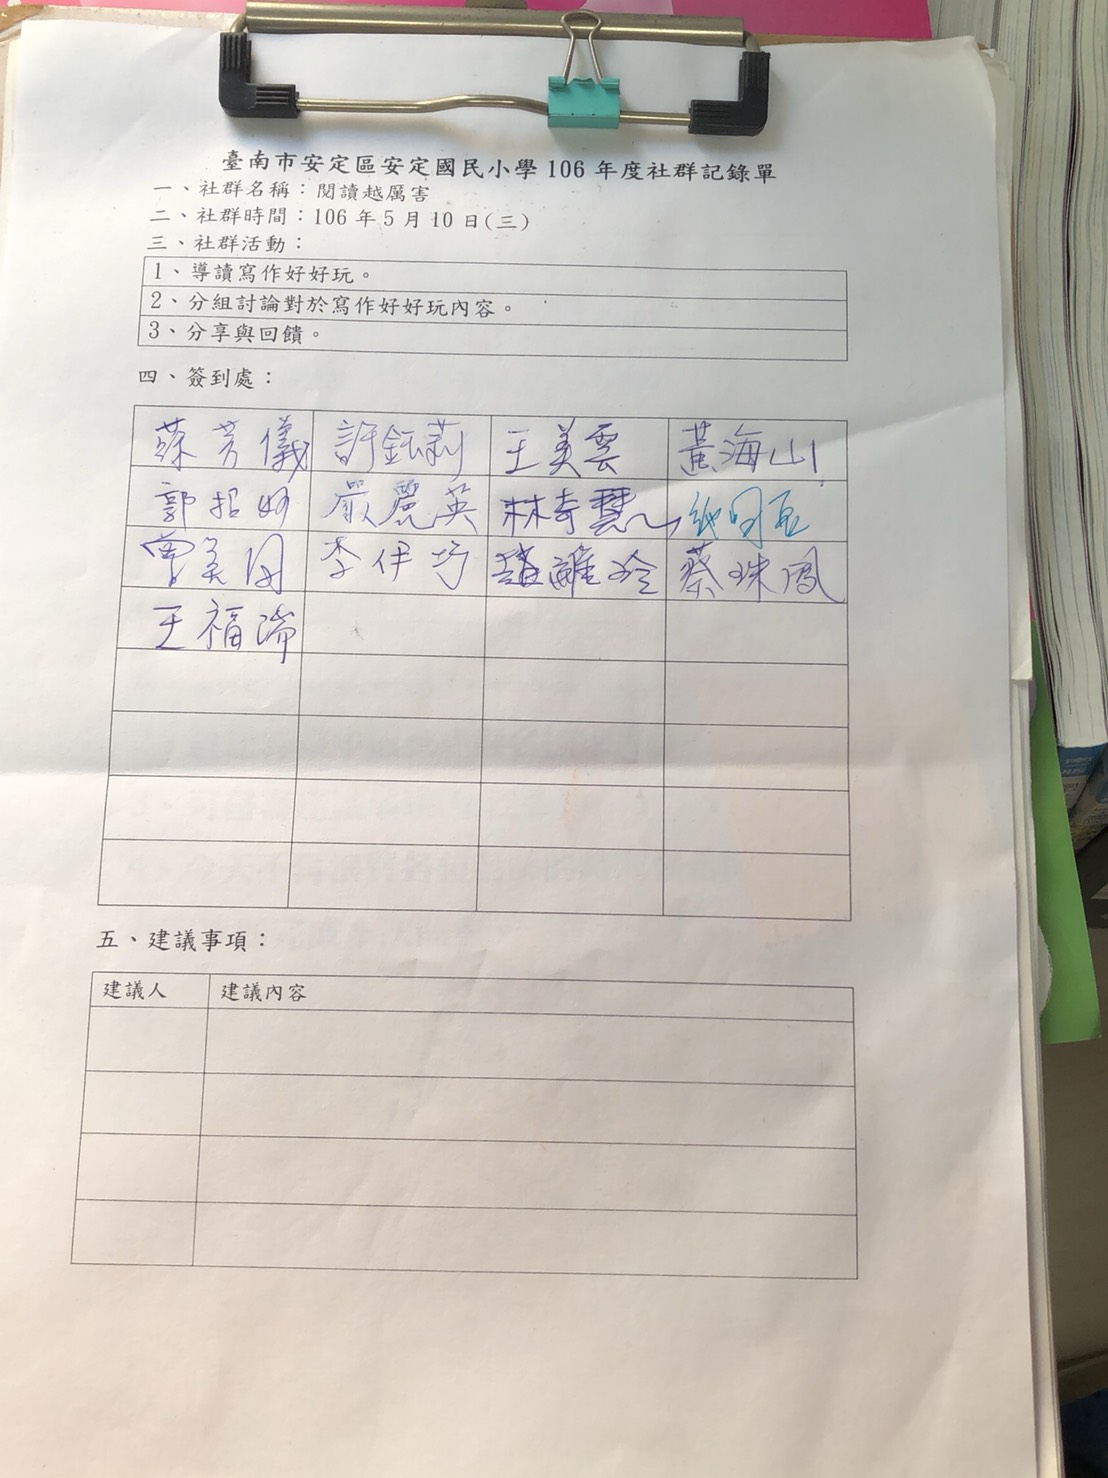 臺南市安定區安定國民小學 106 年度社群記錄單
一、社群名稱：閱讀越厲害
二、社群時間：106 年 5 月 10 日(三)
三、社群活動：
1、導讀寫作好好玩。
2、分組討論對於寫作好好玩內容。
3、分享與回饋。
四、簽到處：
蘇芳儀 許鈺莉 王美雲 黃海山
郭招妤 嚴麗英 林奇慧
曾美月 李伊巧 蔡珠鳳
王福瑞
五、建議事項：
建議人 建議內容